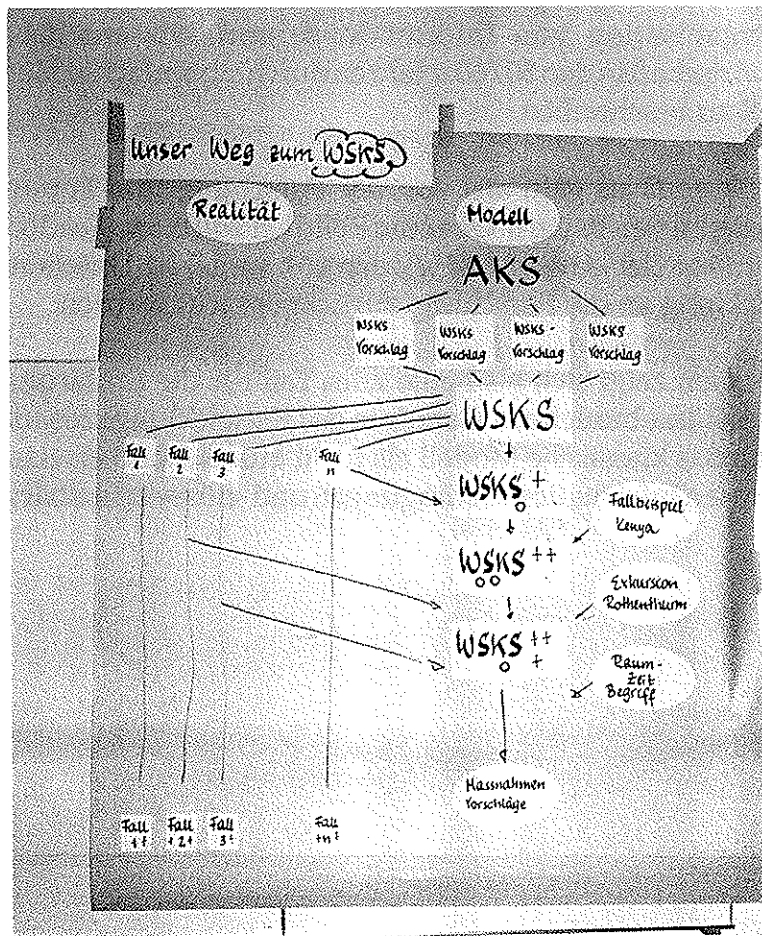 Unser Weg zum WSKS
Realität
Modell
AKS
WSKS
Vorschlag
WSKS
Vorschlag
WSKS-
Vorschlag
WSKS
Vorschlag
WSKS
Fall
1
Fall
2
Fall
3
Fall
n
WSKS +
Fallbeispiel
Kenya
WSKS ++
Exkursion
Rothenthurm
WSKS ++
+
Raum-
Zeit
Begriff
Massnahmen
Vorschläge
Fall
Fall
Fall
Fall